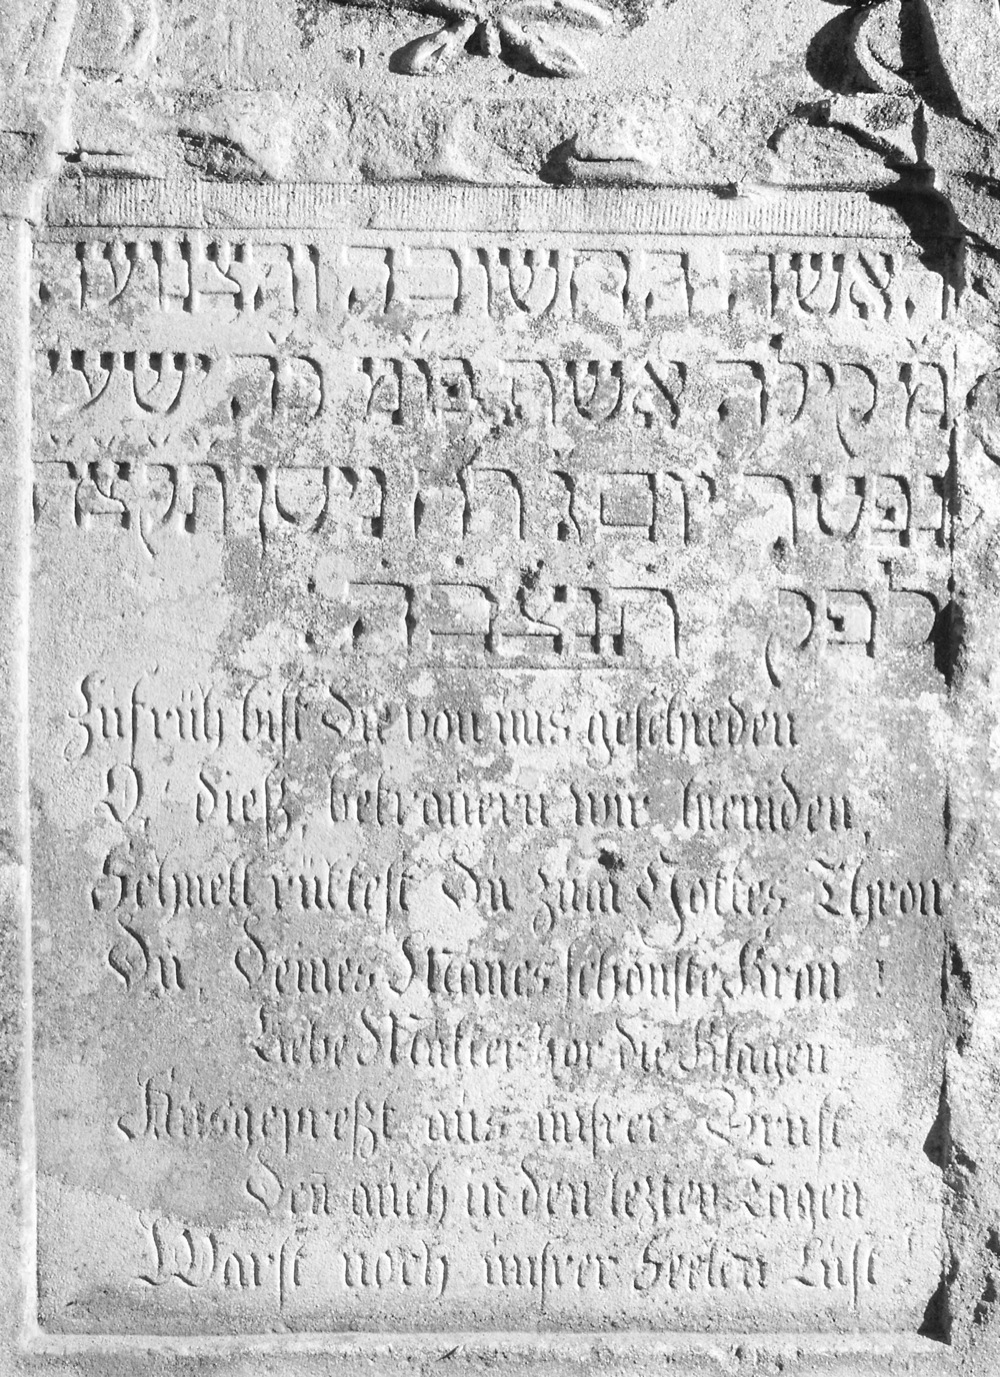 האשה החשובה והצנועה
מ' קילה אשת פו"מ כ"ה ישעי'
נפטר' יום ג' ר"ח ניסן תקצ"ה
לפ"ק תנצבה
Zufrüh bist du von uns geschieden
O! dieß betrauern wir hieniden,
Schnell rüktest du zum Gottes Thron
Du, deines Manes schönste Kron!
Liebe Mutter hör die Klagen
Ausgepreßt aus unsrer Brust
Den auch in den lezten Tagen
Warst noch unsrer Seelen Lust!